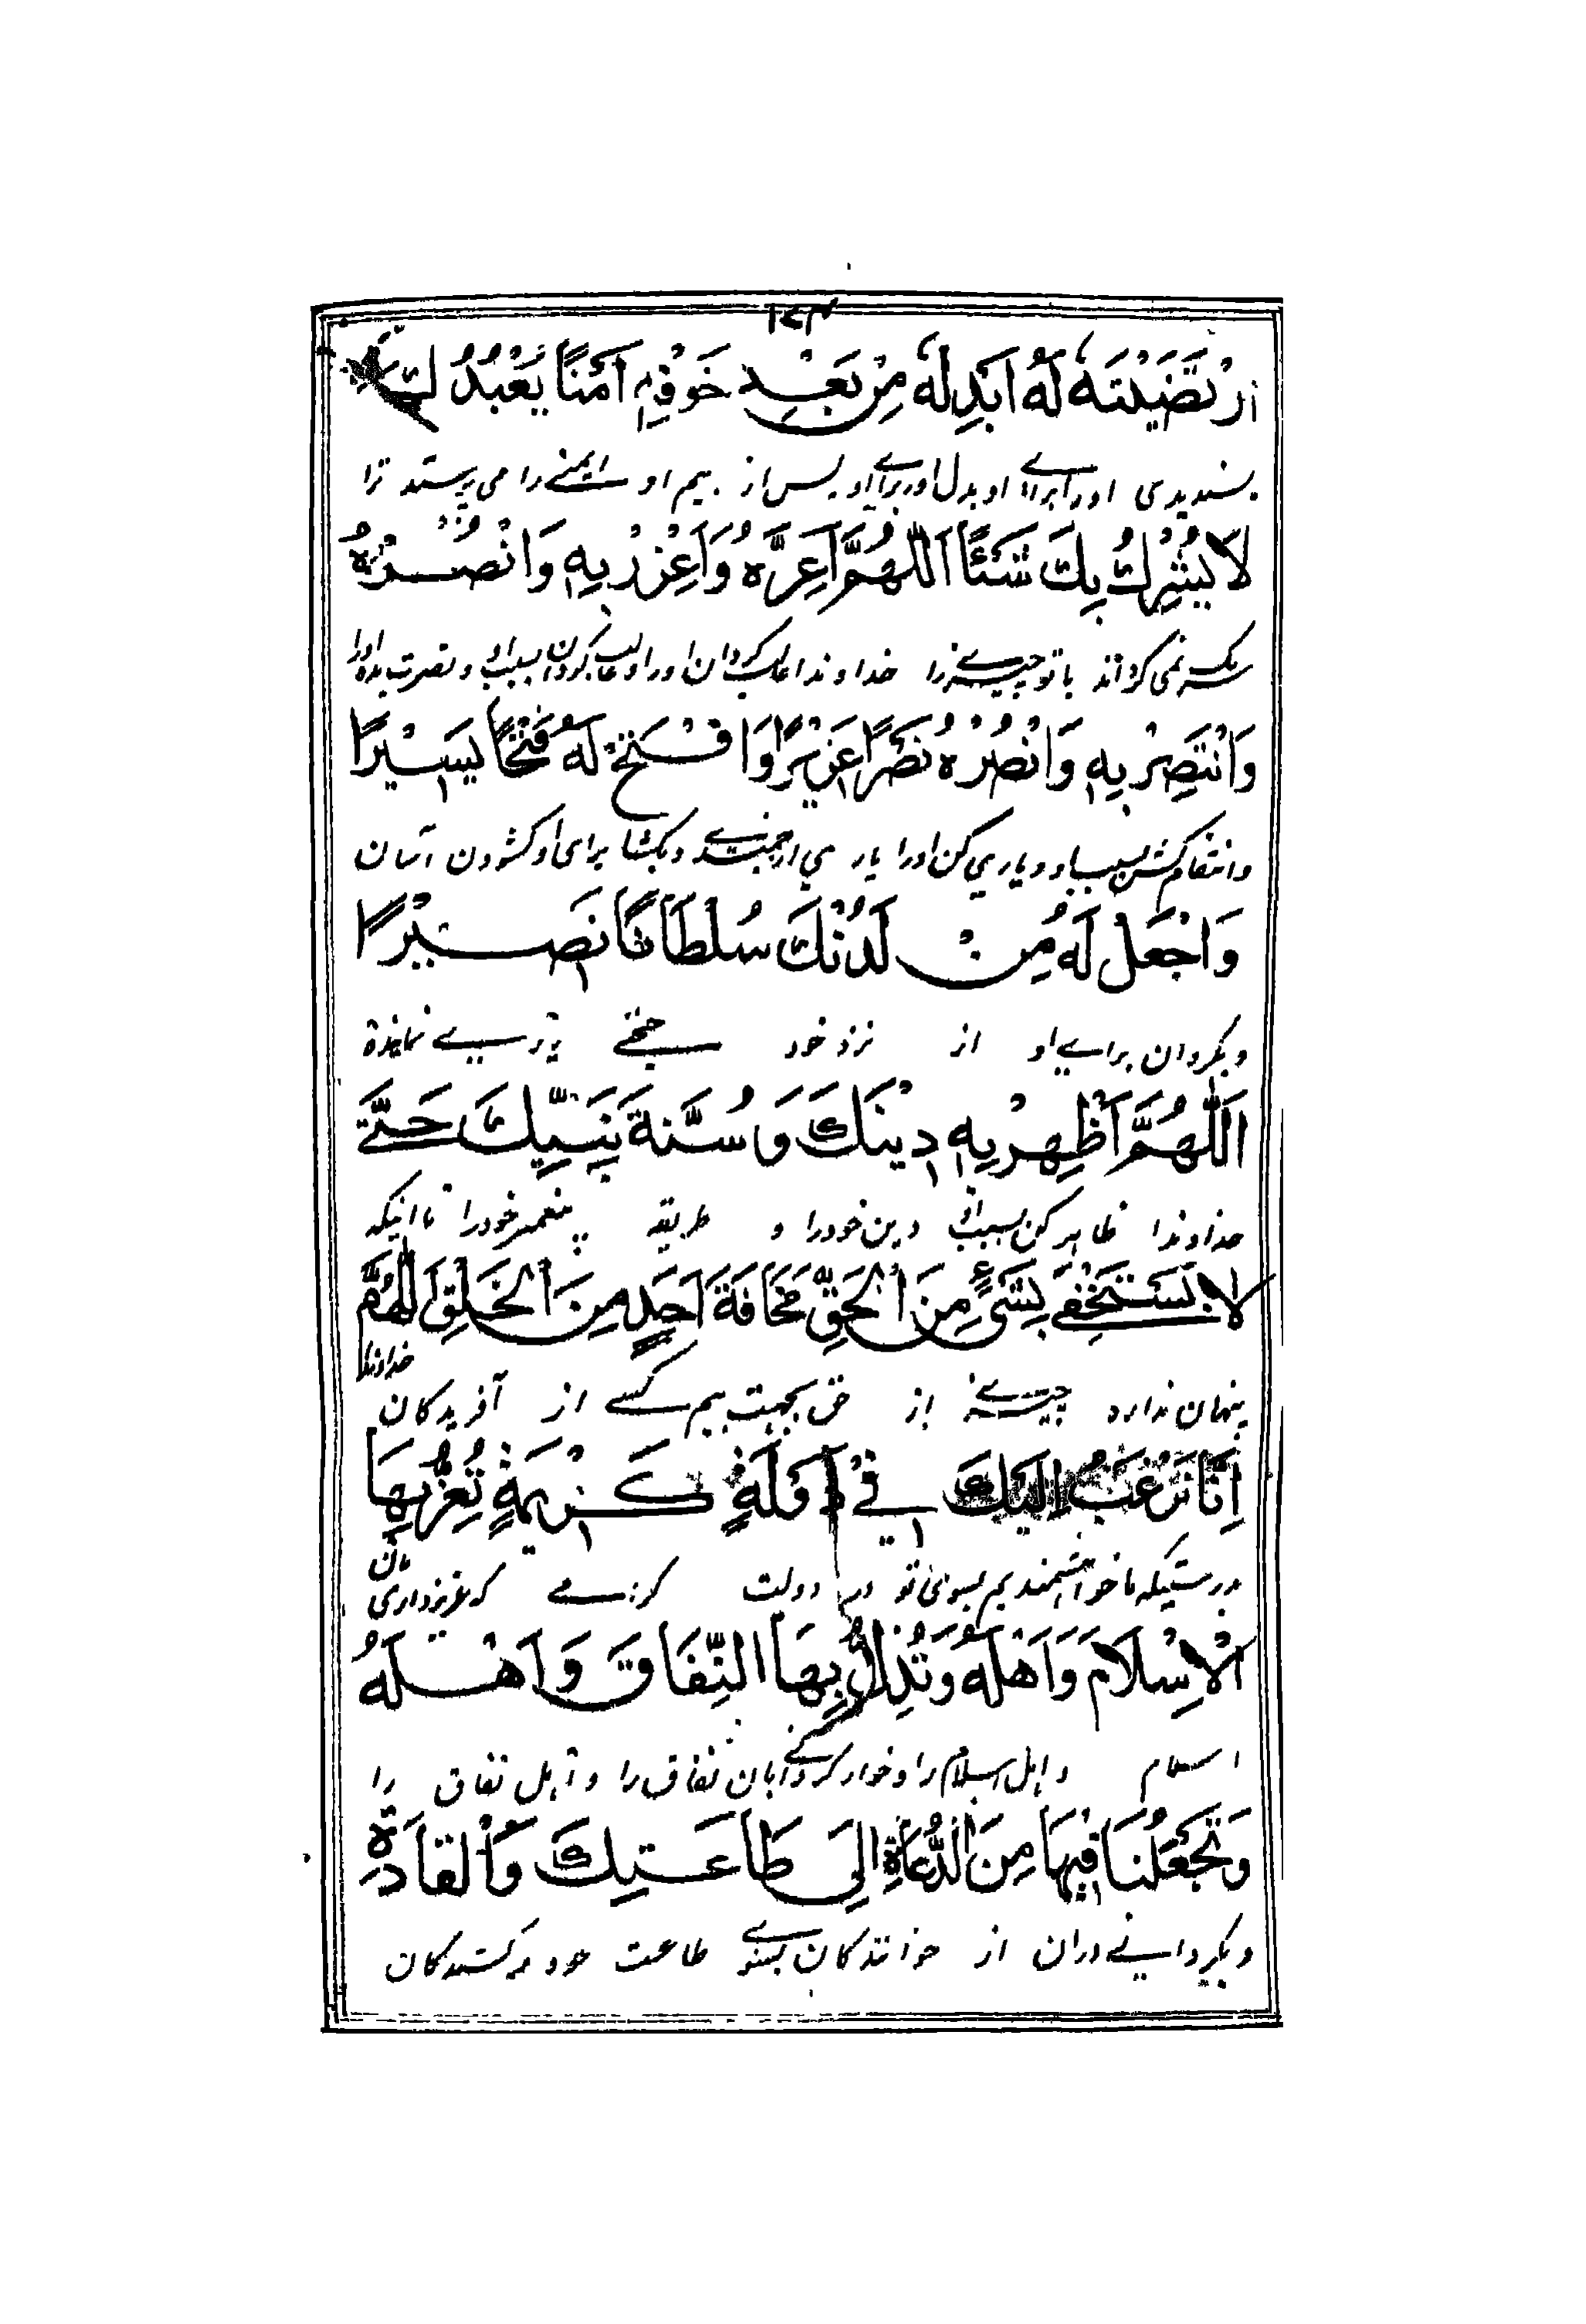 ۱۷۳
ارْتَضَيْتَهُ لَهُ اَبْدِلْهُ مِنْ بَعْدِ خَوْفِهِ اَمْنًا يَعْبُدُكَ
پسندیدی او را برای او بدل اور برای او پس از بیم او ایمنے را می پرستد ترا
لَا يُشْرِكُ بِكَ شَيْئًا اَللّٰهُمَّ اَعِزَّهُ وَاَعْزِزْ بِهِ وَانْصُرْهُ
نمی گرداند باتو چیزے را خداوندا غالب گردان اورا و غالب گردان بسبب او و نصرت بده اورا
وَانْتَصِرْ بِهِ وَانْصُرْهُ نَصْرًا عَزِيْزًا وَافْتَحْ لَهُ فَتْحًا يَسِيْرًا
وانتقام کش بسبب او و یاری کن اورا یاری ارجمندے و بکشا برای او کشودن آسان
وَاجْعَلْ لَهُ مِنْ لَدُنْكَ سُلْطَانًا نَصِيْرًا
و بگردان براے او از نزد خود حجتے
اَللّٰهُمَّ اَظْهِرْ بِهِ دِيْنَكَ وَسُنَّةَ نَبِيِّكَ حَتّٰى
خداوندا ظاهر کن بسبب او دین خودرا و طریقه پیغمبر خودرا تا اینکه
لَا يَسْتَخْفِيَ بِشَيْءٍ مِنَ الْحَقِّ مَخَافَةَ اَحَدٍ مِنَ الْخَلْقِ اَللّٰهُمَّ
خداوندا
پنهان ندارد چیزے از حق بجهت بیم کسے از آفریدگان
اِنَّا نَرْغَبُ اِلَيْكَ فِيْ دَوْلَةٍ كَرِيْمَةٍ تُعِزُّ بِهَا
بدرستیکه ما خواهشمندیم بسوی تو در دولت کریمے که عزیز داری بآن
الْاِسْلَامَ وَاَهْلَهُ وَتُذِلُّ بِهَا النِّفَاقَ وَاَهْلَهُ
اسلام و اهل اسلام را و خوار گردانے بان نفاق را و اهل نفاق را
وَتَجْعَلُنَا فِيْهَا مِنَ الدُّعَاةِ اِلٰى طَاعَتِكَ وَالْقَادَةِ
و بگردانے دران از خوانندگان بسوے طاعت خود و